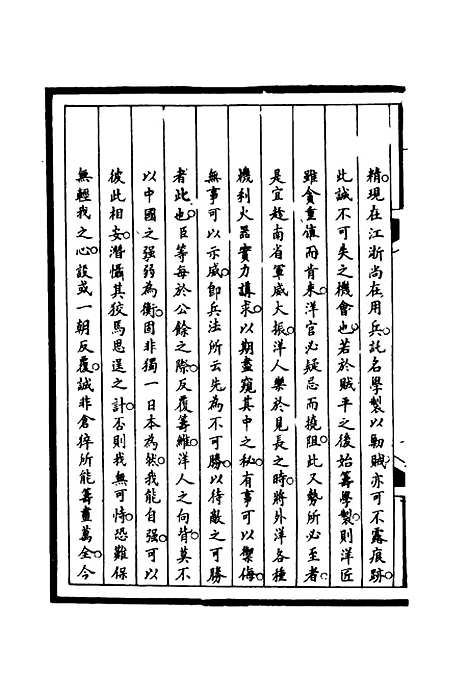 精。現在江浙尚在用兵。託名學製以勦賊亦可不露痕跡。
此誠不可失之機會也。若於賊平之後始籌學製。則洋匠
雖貪重僱而肯來。洋官必疑忌而撓阻。此又勢所必至者。
是宜趁南省軍威大振。洋人樂於見長之時。將外洋各種
機利火器實力講求。以期盡窺其中之秘。有事可以禦侮。
無事可以示威。即兵法所云先為不可勝。以待敵之可勝
者此也。臣等每於公餘之際。反覆籌維。洋人之向背。莫不
以中國之强弱為衡。固非獨一日本為然。我能自强。可以
彼此相安。潛懾其狡焉思逞之計。否則我無可恃。恐難保
無輕我之心。設或一朝反覆。誠非倉猝所能籌畫萬全。今